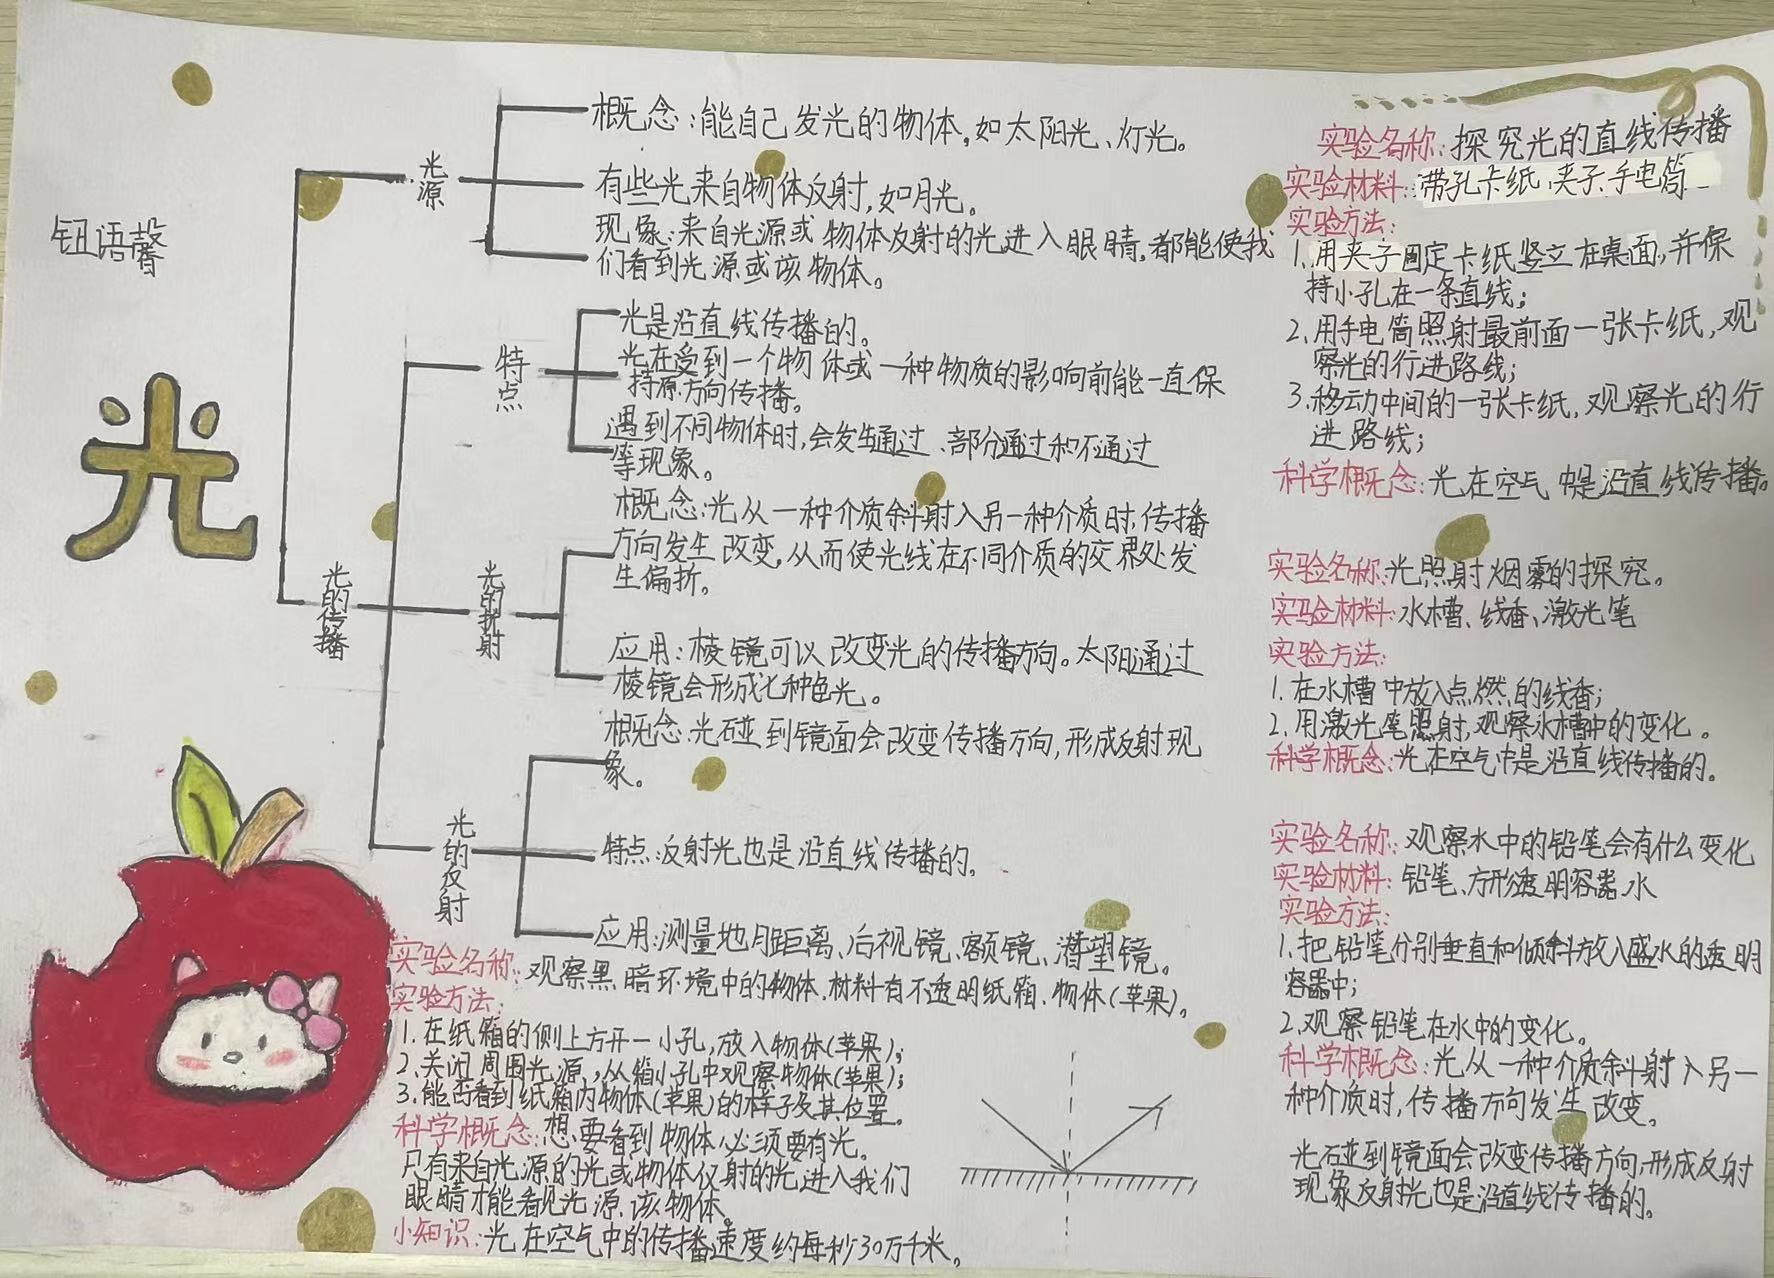 钮语馨
光
光源
概念：能自己发光的物体，如太阳光、灯光。
有些光来自物体反射，如月光。
现象：来自光源或物体反射的光进入眼睛，都能使我
们看到光源或该物体。
光的传播
特点
光是沿直线传播的。
光在受到一个物体或一种物质的影响前能一直保
持源方向传播。
遇到不同物体时，会发生通过、部分通过和不通过
等现象。
光的折射
概念：光从一种介质斜射入另一种介质时，传播
方向发生改变，从而使光线在不同介质的交界处发
生偏折。
应用：棱镜可以改变光的传播方向。太阳通过
棱镜会形成七种色光。
光的反射
概念：光碰到镜面会改变传播方向，形成反射现
象。
特点：反射光也是沿直线传播的。
应用：测量地月距离、后视镜、额镜、潜望镜。
实验名称：观察黑暗环境中的物体，材料有不透明纸箱、物体(苹果)。
实验方法：
1.在纸箱的侧上方开一小孔，放入物体(苹果)；
2.关闭周围光源，从箱小孔中观察物体(苹果)；
3.能否看到纸箱内物体(苹果)的样子及其位置。
科学概念：想要看到物体必须要有光。
只有来自光源的光或物体仅射的光进入我们
眼睛才能看见光源、该物体。
小知识：光在空气中的传播速度约每秒30万千米。
实验名称：探究光的直线传播
实验材料：带孔卡纸、夹子、手电筒
实验方法：
1.用夹子固定卡纸竖立在桌面，并保
持小孔在一条直线；
2.用手电筒照射最前面一张卡纸，观
察光的行进路线；
3.移动中间的一张卡纸，观察光的行
进路线；
科学概念：光在空气中是沿直线传播。
实验名称：光照射烟雾的探究。
实验材料：水槽、线香、激光笔
实验方法：
1.在水槽中放入点燃的线香；
2.用激光笔照射，观察水槽中的变化。
科学概念：光在空气中是沿直线传播的。
实验名称：观察水中的铅笔会有什么变化
实验材料：铅笔、方形透明容器、水
实验方法：
1.把铅笔分别垂直和倾斜放入盛水的透明
容器中；
2.观察铅笔在水中的变化。
科学概念：光从一种介质斜射入另一
种介质时，传播方向发生改变。
光碰到镜面会改变传播方向，形成反射
现象反射光也是沿直线传播的。